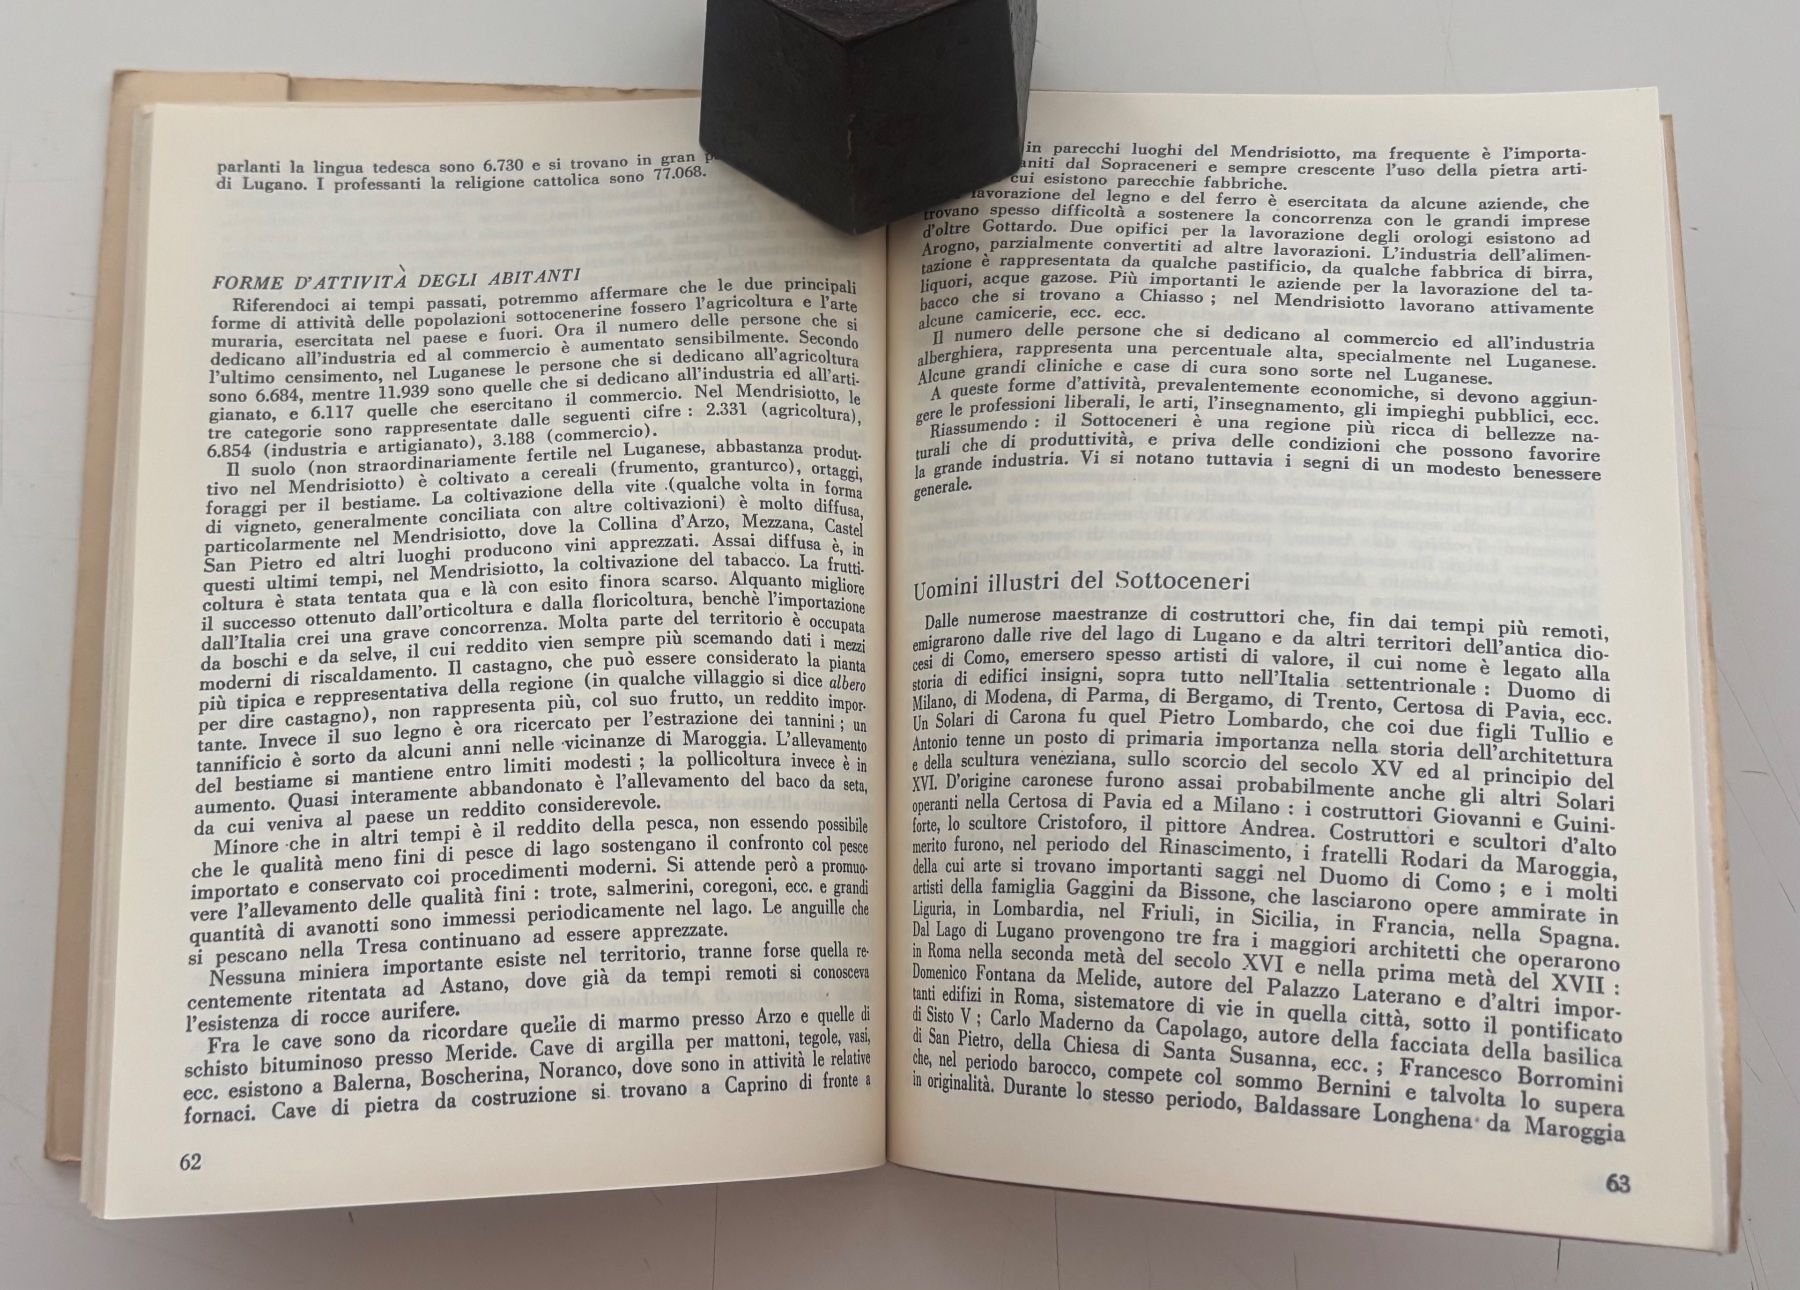 parlanti la lingua tedesca sono 6.730 e si trovano in gran
di Lugano. I professanti la religione cattolica sono 77.068.
FORME D'ATTIVITÀ DEGLI ABITANTI
Riferendoci ai tempi passati, potremmo affermare che le due principali
forme di attività delle popolazioni sottocenerine fossero l'agricoltura e l'arte
muraria, esercitata nel paese e fuori. Ora il numero delle persone che si
dedicano all'industria ed al commercio è aumentato sensibilmente. Secondo
l'ultimo censimento, nel Luganese le persone che si dedicano all'agricoltura
sono 6.684, mentre 11.939 sono quelle che si dedicano all'industria ed all'arti-
gianato, e 6.117 quelle che esercitano il commercio. Nel Mendrisiotto, le
tre categorie sono rappresentate dalle seguenti cifre : 2.331 (agricoltura),
6.854 (industria e artigianato), 3.188 (commercio).
Il suolo (non straordinariamente fertile nel Luganese, abbastanza produt-
tivo nel Mendrisiotto) è coltivato a cereali (frumento, granturco), ortaggi,
foraggi per il bestiame. La coltivazione della vite (qualche volta in forma
di vigneto, generalmente conciliata con altre coltivazioni) è molto diffusa,
particolarmente nel Mendrisiotto, dove la Collina d'Arzo, Mezzana, Castel
San Pietro ed altri luoghi producono vini apprezzati. Assai diffusa è, in
questi ultimi tempi, nel Mendrisiotto, la coltivazione del tabacco. La frutti-
coltura è stata tentata qua e là con esito finora scarso. Alquanto migliore
il successo ottenuto dall'orticoltura e dalla floricoltura, benchè l'importazione
dall'Italia crei una grave concorrenza. Molta parte del territorio è occupata
da boschi e da selve, il cui reddito vien sempre più scemando dati i mezzi
moderni di riscaldamento. Il castagno, che può essere considerato la pianta
più tipica e reppresentativa della regione (in qualche villaggio si dice albero
per dire castagno), non rappresenta più, col suo frutto, un reddito impor-
tante. Invece il suo legno è ora ricercato per l'estrazione dei tannini ; un
tannificio è sorto da alcuni anni nelle vicinanze di Maroggia. L'allevamento
del bestiame si mantiene entro limiti modesti ; la pollicoltura invece è in
aumento. Quasi interamente abbandonato è l'allevamento del baco da seta,
da cui veniva al paese un reddito considerevole.
Minore che in altri tempi è il reddito della pesca, non essendo possibile
che le qualità meno fini di pesce di lago sostengano il confronto col pesce
importato e conservato coi procedimenti moderni. Si attende però a promuo-
vere l'allevamento delle qualità fini : trote, salmerini, coregoni, ecc. e grandi
quantità di avanotti sono immessi periodicamente nel lago. Le anguille che
si pescano nella Tresa continuano ad essere apprezzate.
Nessuna miniera importante esiste nel territorio, tranne forse quella re-
centemente ritentata ad Astano, dove già da tempi remoti si conosceva
l'esistenza di rocce aurifere.
Fra le cave sono da ricordare quelle di marmo presso Arzo e quelle di
schisto bituminoso presso Meride. Cave di argilla per mattoni, tegole, vasi,
ecc. esistono a Balerna, Boscherina, Noranco, dove sono in attività le relative
fornaci. Cave di pietra da costruzione si trovano a Caprino di fronte a
62
in parecchi luoghi del Mendrisiotto, ma frequente è l'importa-
dal Sopraceneri e sempre crescente l'uso della pietra arti-
cui esistono parecchie fabbriche.
lavorazione del legno e del ferro è esercitata da alcune aziende, che
trovano spesso difficoltà a sostenere la concorrenza con le grandi imprese
d'oltre Gottardo. Due opifici per la lavorazione degli orologi esistono ad
Arogno, parzialmente convertiti ad altre lavorazioni. L'industria dell'alimen-
tazione è rappresentata da qualche pastificio, da qualche fabbrica di birra,
liquori, acque gazose. Più importanti le aziende per la lavorazione del ta-
bacco che si trovano a Chiasso ; nel Mendrisiotto lavorano attivamente
alcune camicerie, ecc. ecc.
Il numero delle persone che si dedicano al commercio ed all'industria
alberghiera, rappresenta una percentuale alta, specialmente nel Luganese.
Alcune grandi cliniche e case di cura sono sorte nel Luganese.
A queste forme d'attività, prevalentemente economiche, si devono aggiun-
gere le professioni liberali, le arti, l'insegnamento, gli impieghi pubblici, ecc.
Riassumendo : il Sottoceneri è una regione più ricca di bellezze na-
turali che di produttività, e priva delle condizioni che possono favorire
la grande industria. Vi si notano tuttavia i segni di un modesto benessere
generale.
Uomini illustri del Sottoceneri
Dalle numerose maestranze di costruttori che, fin dai tempi più remoti,
emigrarono dalle rive del lago di Lugano e da altri territori dell'antica dio-
cesi di Como, emersero spesso artisti di valore, il cui nome è legato alla
storia di edifici insigni, sopra tutto nell'Italia settentrionale : Duomo di
Milano, di Modena, di Parma, di Bergamo, di Trento, Certosa di Pavia, ecc.
Un Solari di Carona fu quel Pietro Lombardo, che coi due figli Tullio e
Antonio tenne un posto di primaria importanza nella storia dell'architettura
e della scultura veneziana, sullo scorcio del secolo XV ed al principio del
XVI. D'origine caronese furono assai probabilmente anche gli altri Solari
operanti nella Certosa di Pavia ed a Milano : i costruttori Giovanni e Guini-
forte, lo scultore Cristoforo, il pittore Andrea. Costruttori e scultori d'alto
merito furono, nel periodo del Rinascimento, i fratelli Rodari da Maroggia,
della cui arte si trovano importanti saggi nel Duomo di Como ; e i molti
artisti della famiglia Gaggini da Bissone, che lasciarono opere ammirate in
Liguria, in Lombardia, nel Friuli, in Sicilia, in Francia, nella Spagna.
Dal Lago di Lugano provengono tre fra i maggiori architetti che operarono
in Roma nella seconda metà del secolo XVI e nella prima metà del XVII :
Domenico Fontana da Melide, autore del Palazzo Laterano e d'altri impor-
tanti edifizi in Roma, sistematore di vie in quella città, sotto il pontificato
di Sisto V ; Carlo Maderno da Capolago, autore della facciata della basilica
di San Pietro, della Chiesa di Santa Susanna, ecc. ; Francesco Borromini
che, nel periodo barocco, compete col sommo Bernini e talvolta lo supera
in originalità. Durante lo stesso periodo, Baldassare Longhena da Maroggia
63